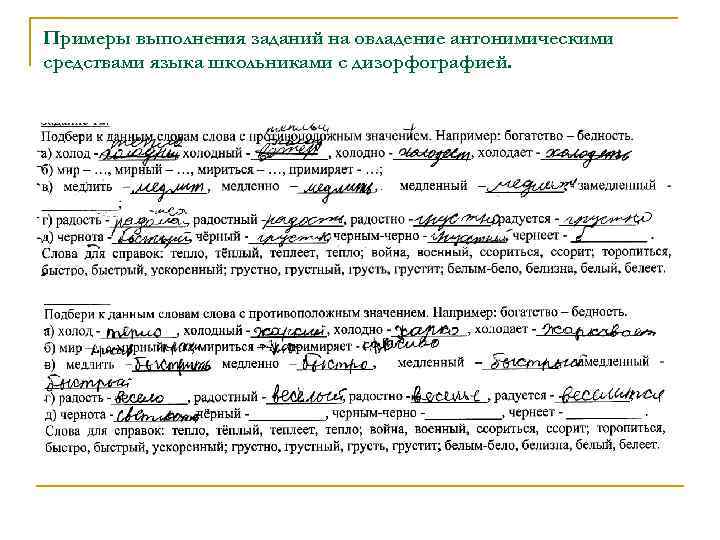 Примеры выполнения заданий на овладение антонимическими
средствами языка школьниками с дизорфографией.
Подбери к данным словам слова с противоположным значением. Например: богатство – бедность.
а) холод - холодни, холодный - , холодно - холодест, холодает - холодеть
б) мир – …, мирный – …, мириться – …, примиряет - …;
в) медлить – медлит, медленно – медлить, медленный – медлеит, замедленный -
;
г) радость - , радостный - радость, радостно - грустно, радуется - грустни
д) чернота - быстрый, чёрный - грустно, черным-черно - грустный, чернеет - .
Слова для справок: тепло, тёплый, теплеет, тепло; война, военный, ссориться, ссорит; торопиться,
быстро, быстрый, ускоренный; грустно, грустный, грусть, грустит; белым-бело, белизна, белый, белеет.
Подбери к данным словам слова с противоположным значением. Например: богатство – бедность.
а) холод - , холодный - жаркий, холодно - жарко, холодает -
б) мир – , мирный – , мириться – , примиряет - красиво
в) медлить – быстрить, медленно – быстро, медленный – быстрый, замедленный -
быстрой
г) радость - весело, радостный - весёлый, радостно - веселье, радуется - веселится
д) чернота - , чёрный - , черным-черно - , чернеет - .
Слова для справок: тепло, тёплый, теплеет, тепло; война, военный, ссориться, ссорит; торопиться,
быстро, быстрый, ускоренный; грустно, грустный, грусть, грустит; белым-бело, белизна, белый, белеет.